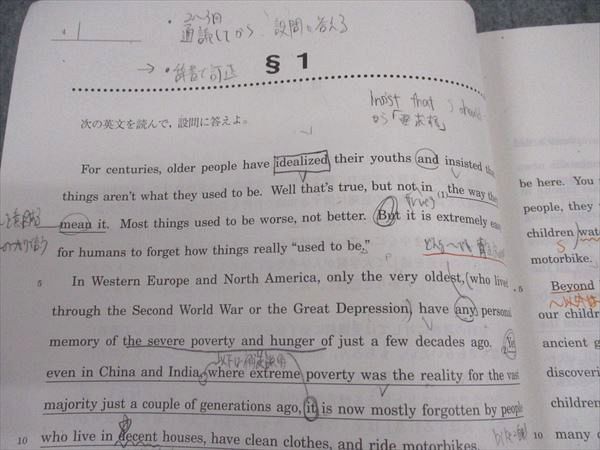 ・2〜3回
通読してから 設問に答える
→ ・辞書で可
§ 1
Insist that S should
から「要求
次の英文を読んで，設問に答えよ。
For centuries, older people have idealized their youths and insisted that
things aren't what they used to be. Well that's true, but not in (1) the way they
mean it. Most things used to be worse, not better. But it is extremely easy
for humans to forget how things really “used to be.”
5 In Western Europe and North America, only the very oldest, (who lived
through the Second World War or the Great Depression) have any personal
memory of the severe poverty and hunger of just a few decades ago. Yet
even in China and India, where extreme poverty was the reality for the vast
majority just a couple of generations ago, it is now mostly forgotten by people
10 who live in decent houses, have clean clothes, and ride motorbikes.
be here. You
people, they
children wat
S
motorbike.
5 Beyond
〜以外
our childr
ancient g
discoveri
children
10 many c